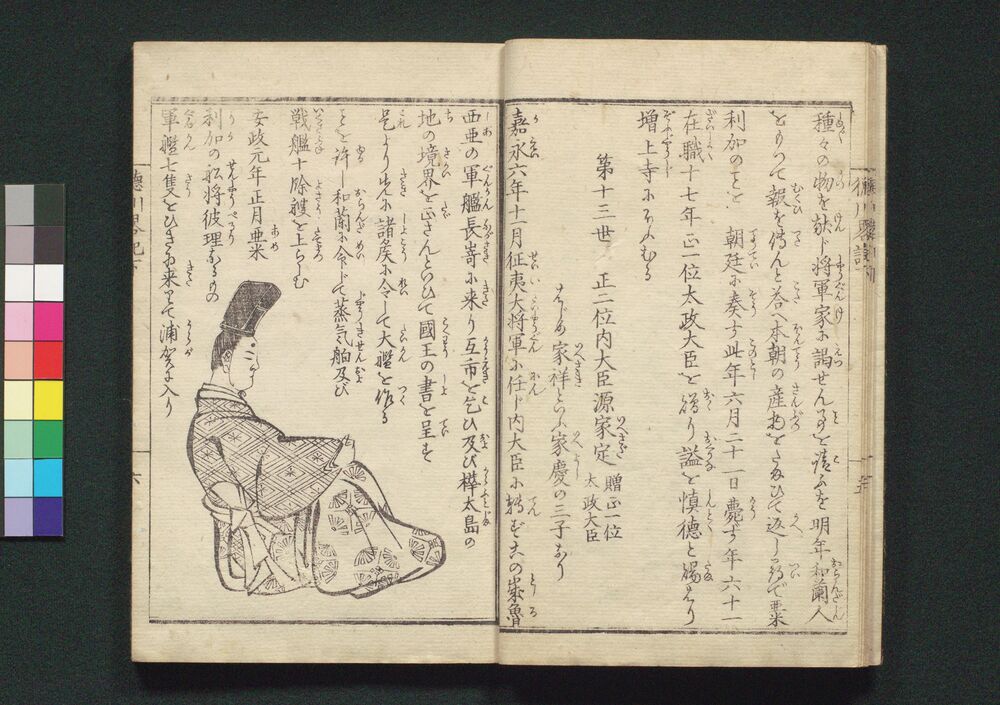 種々の物を献じ将軍家に謁せん事を請ふを明年和蘭人
をもつて報を傳んと答へ本朝の産物をたまひて返らしむ
利加の
朝廷に奏す此年六月二十一日薨ず年六十一
在職十七年正一位太政大臣を贈り謚を慎徳と賜はり
増上寺にはふむる
第十三世 正二位内大臣源家定 贈正一位太政大臣
はじめ家祥といふ家慶の三子なり
嘉永六年十一月征夷大将軍に任じ内大臣に轉ず六の歳魯
西亜の軍艦長崎に来り互市を乞ひ及び樺太島の
地の境界を正さんといひて國王の書を呈す
是より先に諸矦に令して大艦を作る
を許し和蘭に令じて蒸気舶及び
戦艦十隊艘を上らしむ
安政元年正月亜米
利加の舩将彼理なるもの
軍艦七隻をひきゐ来りて浦賀に入り
徳川畧記下
六